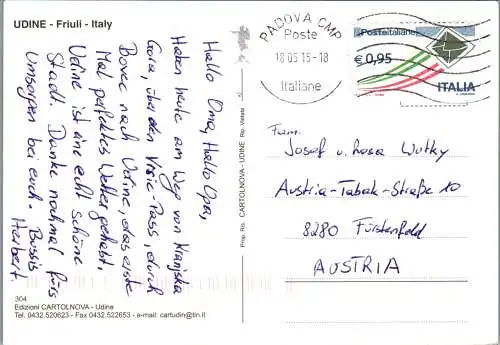 UDINE - Friuli - Italy
Hallo Oma, Hallo Opa,
Haben heute am Weg von Kranjska
Gora, über den Vršic-Pass, durch
Bovec nach Udine, das erste
Mal perfektes Wetter gehabt.
Udine ist eine echt schöne
Stadt. Danke nochmal fürs
Umsorgen bei euch. Bussis
Herbert.
304
Edizioni CARTOLNOVA - Udine
Tel. 0432.520623 - Fax 0432.522653 - e-mail: cartudin@tin.it
Prop. Ris. CARTOLNOVA - UDINE Rip. Vietata
PADOVA CMP
Poste
18 05 15-18
Italiane
Posteitaliane
€ 0,95
ITALIA
Fam.
Josef u. Rosa Wutky
Austria-Tabak-Straße 10
8280 Fürstenfeld
AUSTRIA